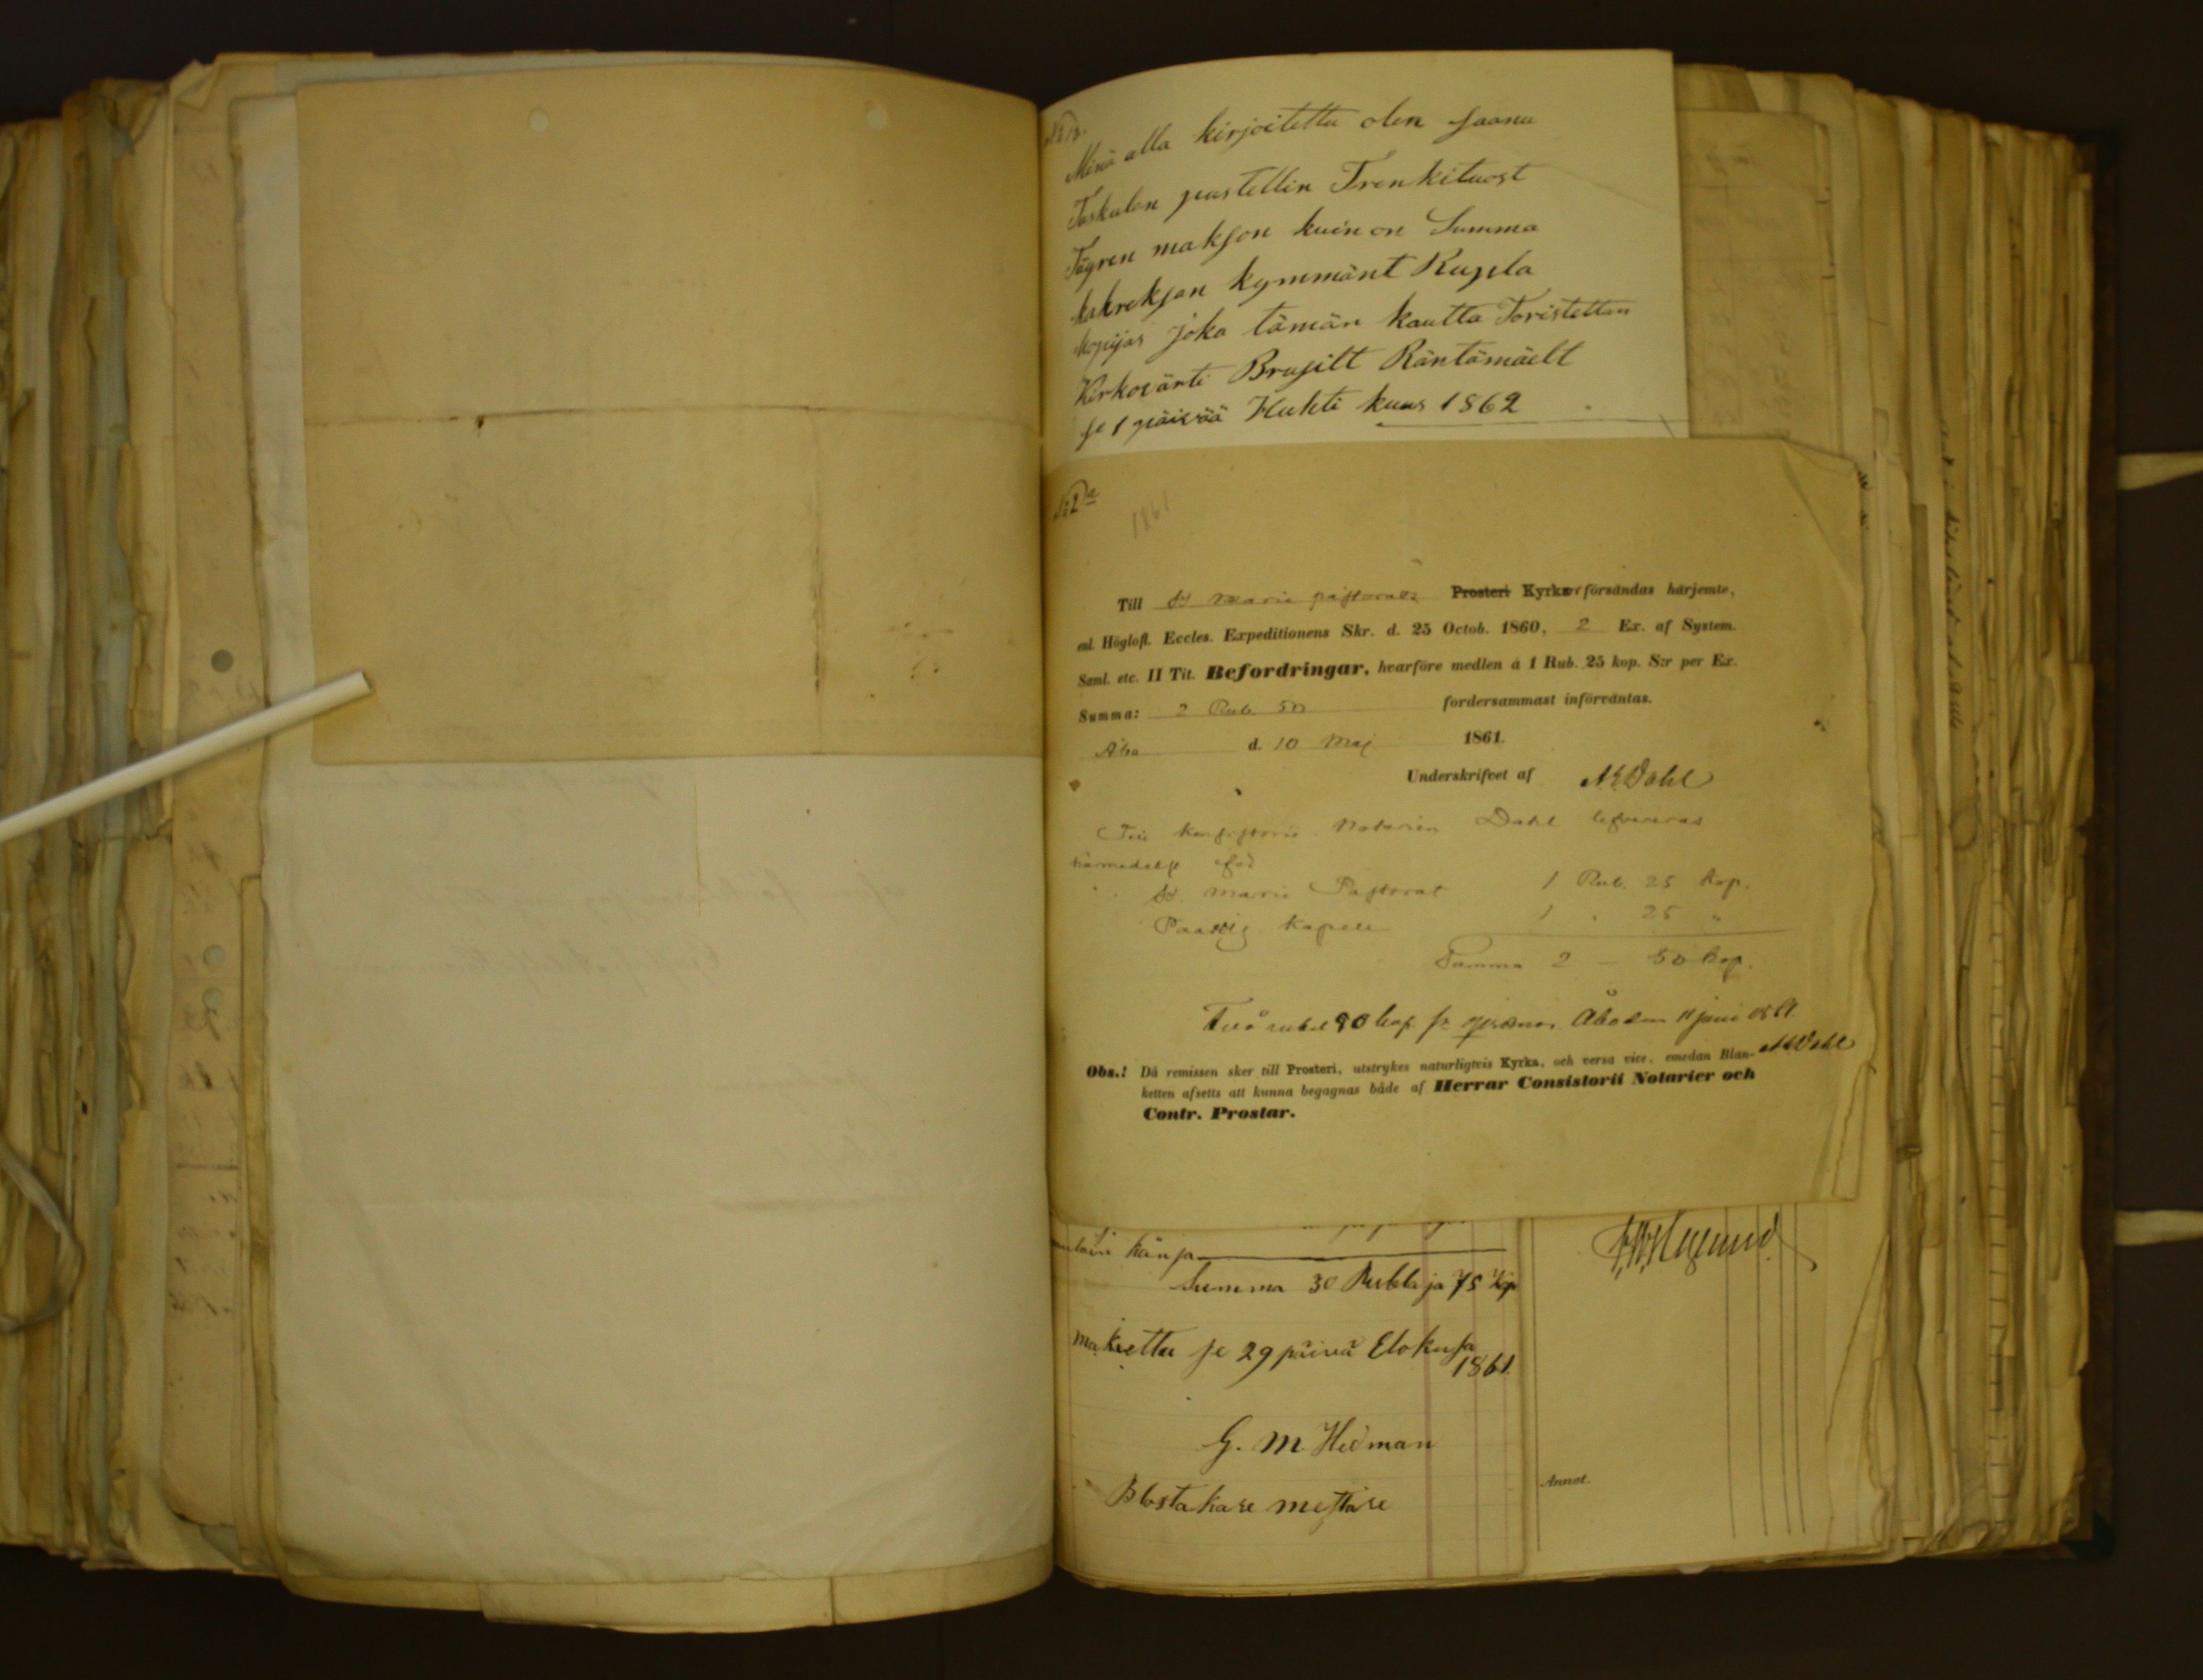 Minä alla kirjoitettu olen saanu
Taskulan pustellin Trenkituost
Tägren makson kuin on Summa
kahreksan kymmänt Rupla
kopijas joka tämän kautta Toristettan
Kirkovärti Brusilt Räntämäelt
se 1 päivää Huhti kuus 1862
1861
Till St Marie pastorats Prosteri Kyrkor försändas härjemte,
enl. Höglofl. Eccles. Expeditionens Skr. d. 25 Octob. 1860, 2 Ex. af System.
Saml. etc. II Tit. Befordringar, hvarföre medlen à 1 Rub. 25 kop. S:r per Ex.
Summa: 2 Rub. 50 fordersammast införväntas.
Åbo d. 10 Maj 1861.
Underskrifvet af A E Dahl
Till Konsistorii Notarien Dahl lefvereras
härmedelst för
St. Marie Pastorat 1 Rub. 25 kop.
Paavig Kapell 1 . 25 "
Summa 2 — 50 kop.
Två rubel 50 kop. Åbo den 11 juni 1861.
AEDahl
Obs.! Då remissen sker till Prosteri, utstrykes naturligtvis Kyrka, och versa vice, emedan Blan-
ketten afsetts att kunna begagnas både af Herrar Consistorii Notarier och
Contr. Prostar.
känsa
Summa 30 Rubla ja 75 kop
maksettu se 29 päivä Elokusa
1861.
G. M. Hedman
Plostakare mestare
Annot.